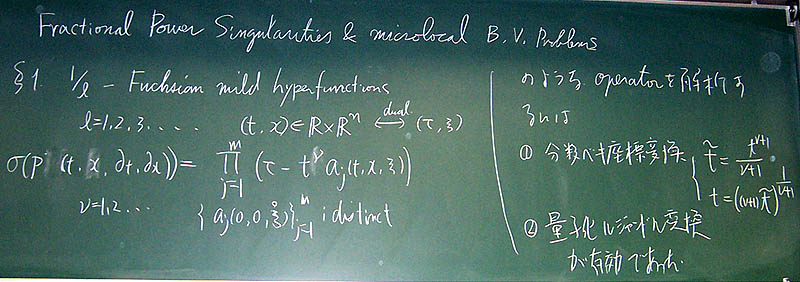 Fractional Power Singularities & microlocal B.V. Problems
§1. 1/ℓ - Fuchsian mild hyperfunctions
ℓ=1,2,3.... (t,x)∈ℝ×ℝⁿ ⟷dual (τ,ξ)
σ(P (t,x,∂t,∂x)) = ∏_{j=1}^{m} (τ - t^ν a_j(t,x,ξ))
ν=1,2... {a_j(0,0,ξ°)}_{j=1}^{m} : distinct
のような operatorを解析す
るには
① 分数べき座標変換 { t̃ = t^{ν+1}/(ν+1)
t = ((ν+1)t̃)^{1/(ν+1)}
② 量子化ルジャンドル変換
が有効であった.